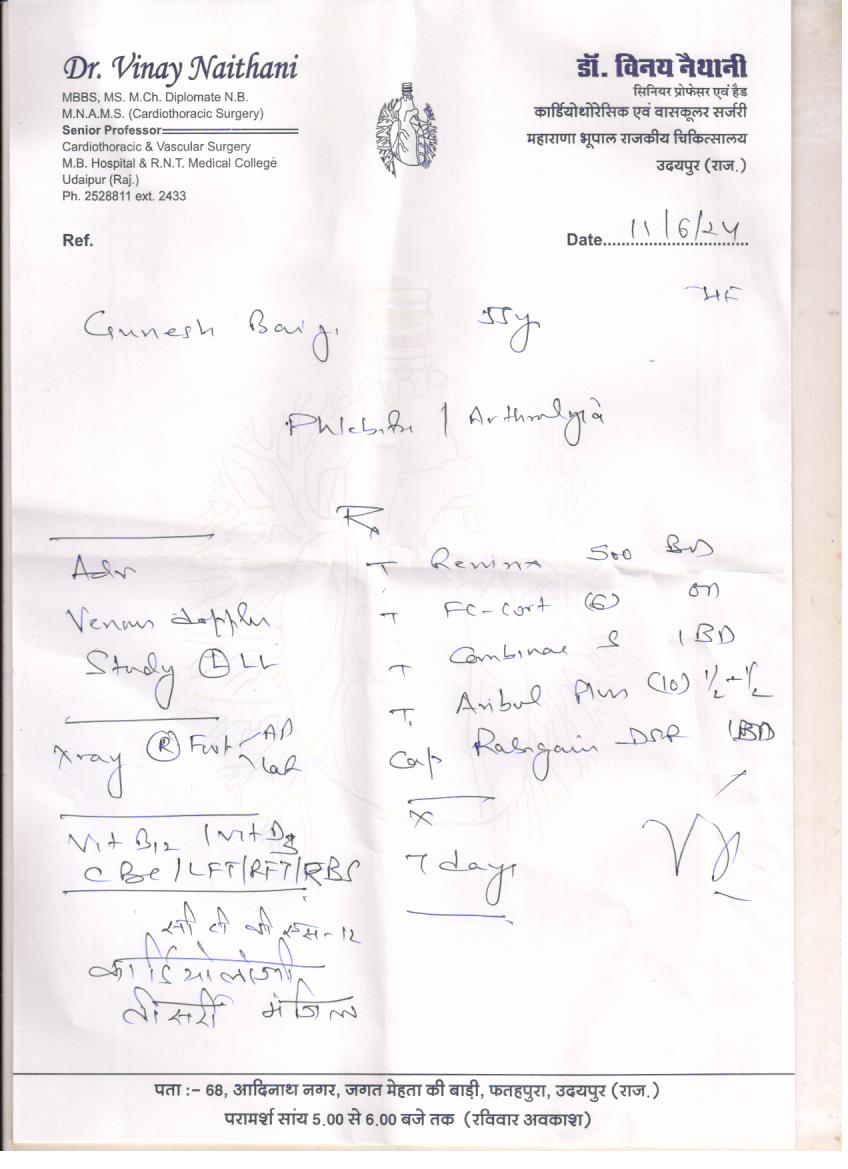 Dr. Vinay Naithani
MBBS, MS. M.Ch. Diplomate N.B.
M.N.A.M.S. (Cardiothoracic Surgery)
Senior Professor
Cardiothoracic & Vascular Surgery
M.B. Hospital & R.N.T. Medical College
Udaipur (Raj.)
Ph. 2528811 ext. 2433
डॉ. विनय नैथानी
सिनियर प्रोफेसर एवं हैड
कार्डियोथोरेसिक एवं वासकूलर सर्जरी
महाराणा भूपाल राजकीय चिकित्सालय
उदयपुर (राज.)
Ref.
Date 11/6/24
Phlebitis / Arthralgia
Rx
Adv
Venous doppler
Study (L) LL
Xray (R) Foot AP
Lat
Vit B12 / Vit D3
CBC / LFT/RFT/RBS
सी टी वी एस-12
कार्डियोलोजी
तीसरी मंजिल
T 500 BD
T FC-Cort (6) OD
T 1 BD
T. Plus (10) 1/2 - 1/2
Cap DSR 1BD
X
7 days
पता :- 68, आदिनाथ नगर, जगत मेहता की बाड़ी, फतहपुरा, उदयपुर (राज.)
परामर्श सांय 5.00 से 6.00 बजे तक (रविवार अवकाश)